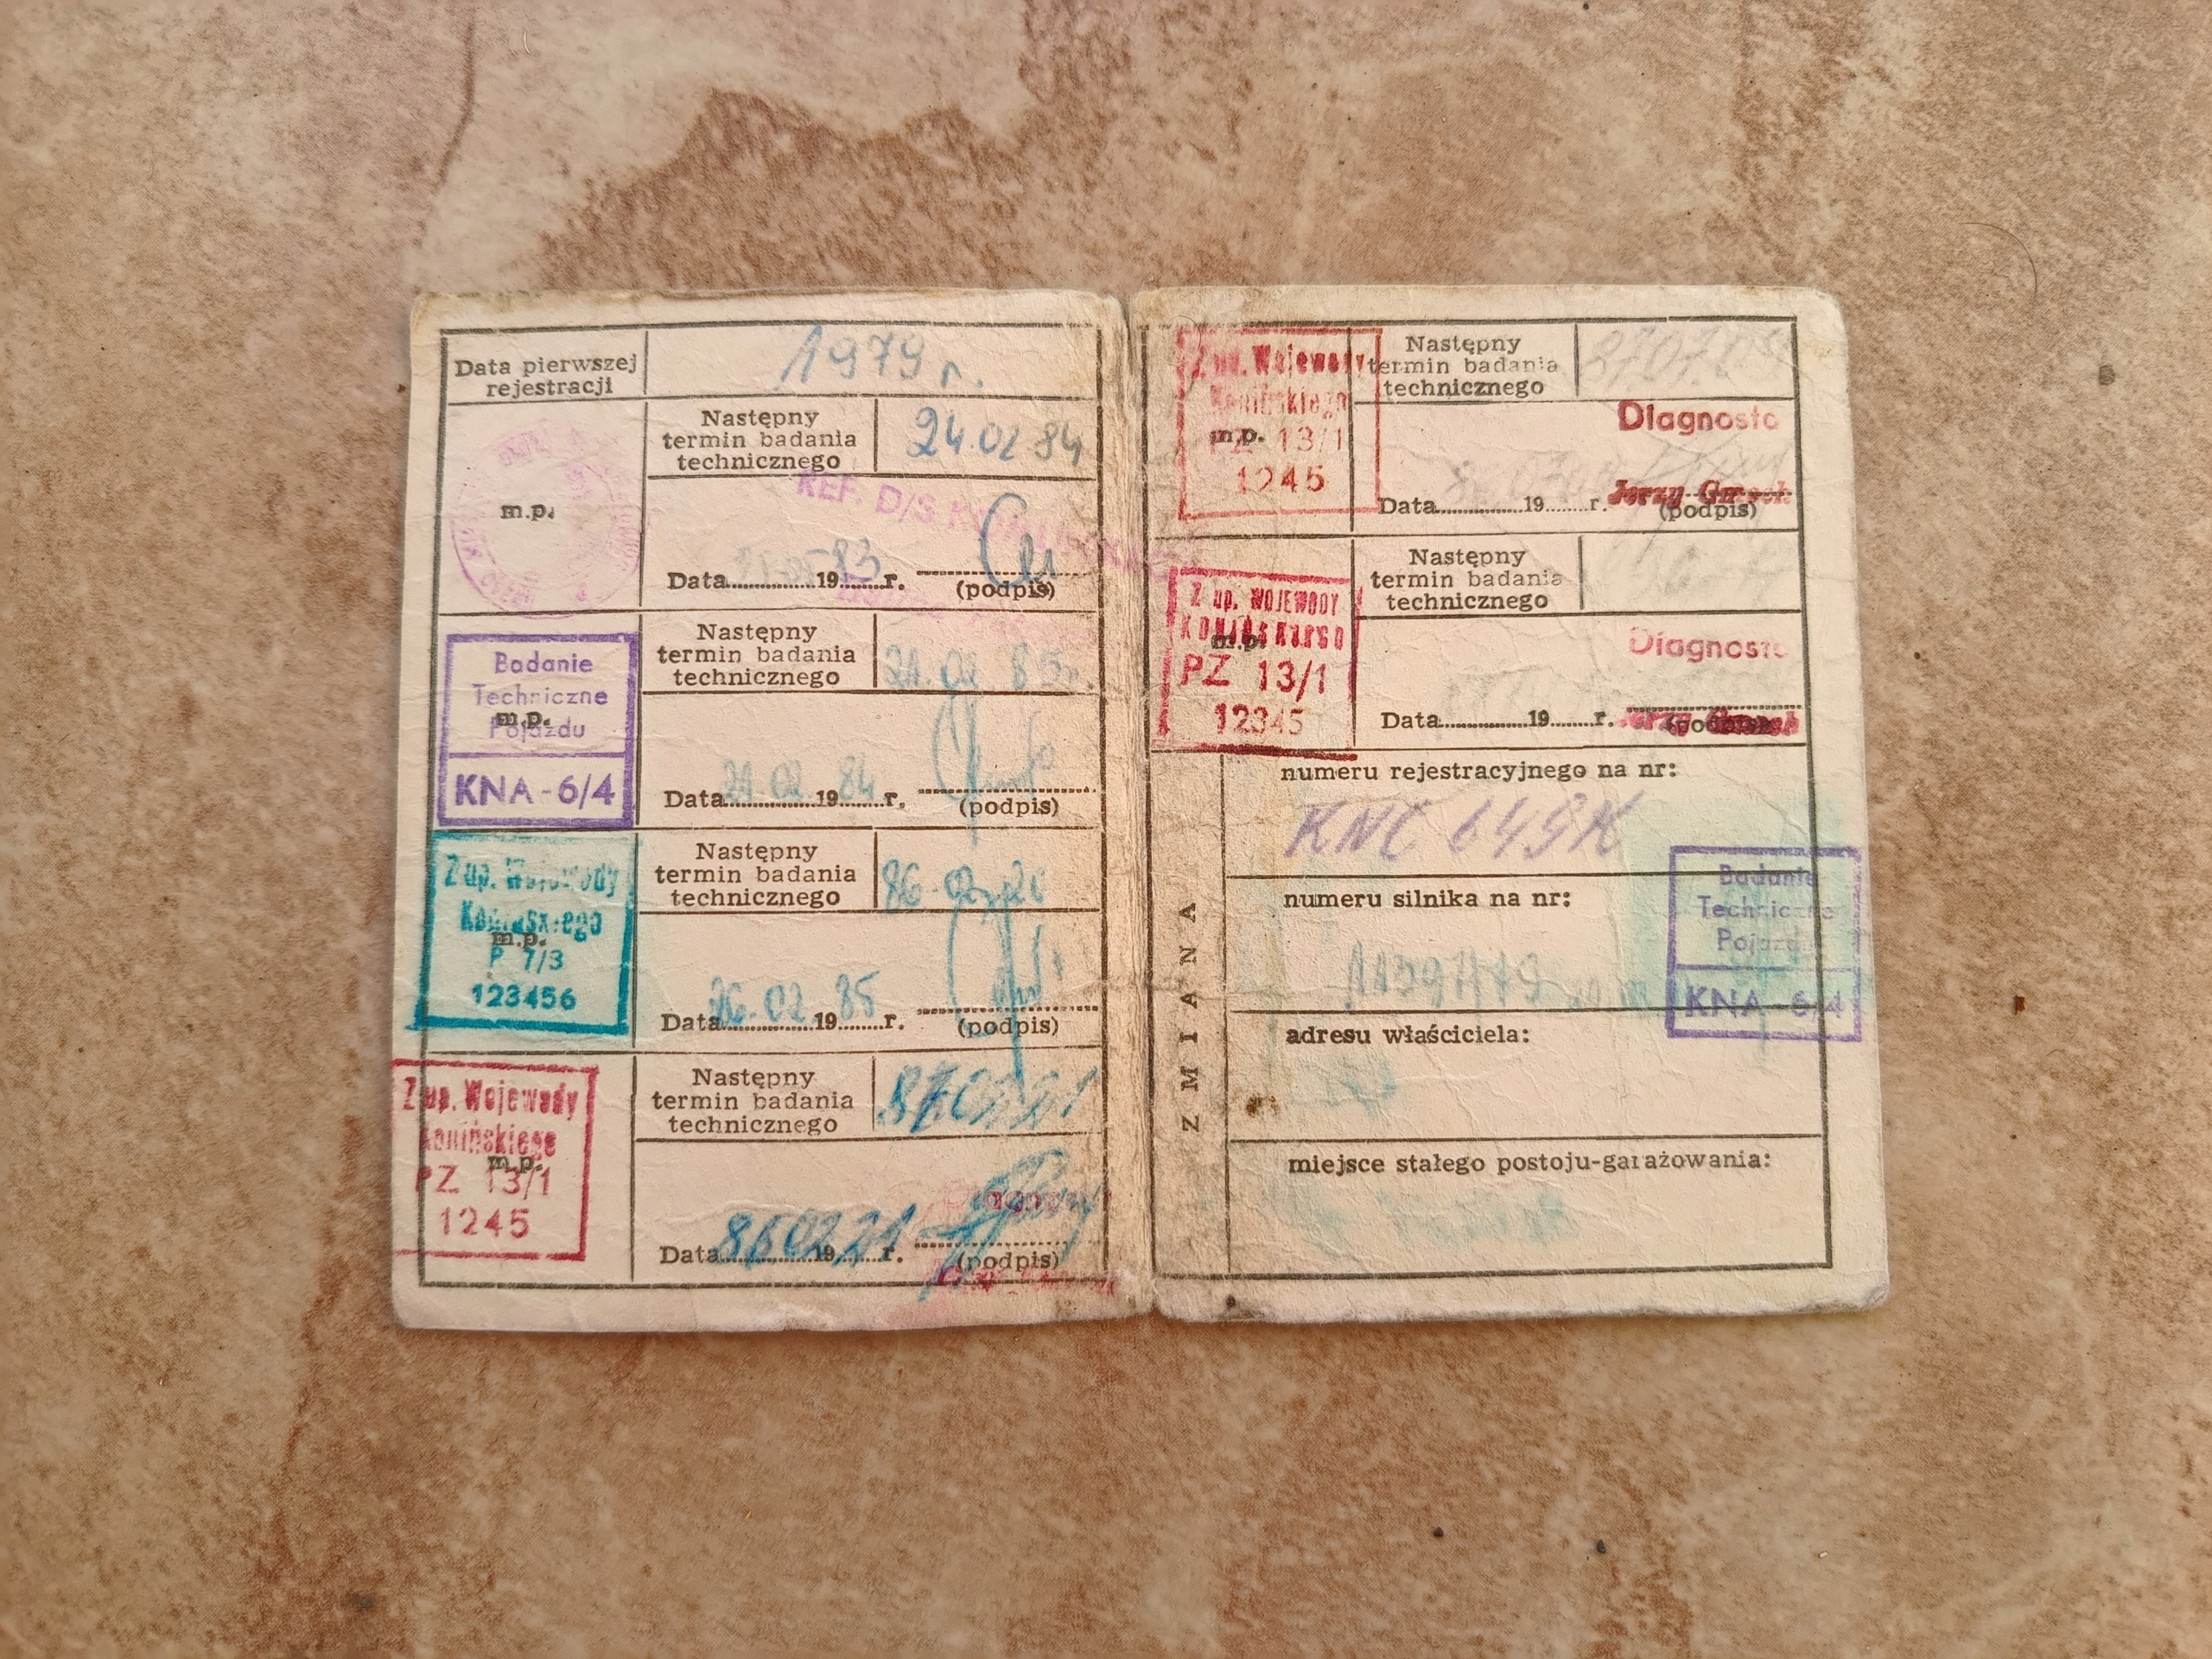 Data pierwszej
rejestracji
1979 r.
Następny
termin badania
technicznego
24.02 84
m.p.
REF. D/S
Data 19 83 r.
(podpis)
Następny
termin badania
technicznego
21.02 85r.
Badanie
Techniczne
m.p.
Pojazdu
KNA-6/4
Data 21 02 19 84 r.
(podpis)
Następny
termin badania
technicznego
86.02
Z up. Wojewody
Konińskiego
m.p.
P 7/3
123456
Data 26.02. 19 85 r.
(podpis)
Następny
termin badania
technicznego
Z up. Wojewody
Konińskiego
m.p.
PZ 13/1
1245
Data 860221 19 r.
(podpis)
Z up. Wojewody
Konińskiego
m.p.
PZ 13/1
1245
Następny
termin badania
technicznego
Diagnosta
Jerzy
Data 19 r.
(podpis)
Z up. WOJEWODY
KONIŃSKIEGO
m.p.
PZ 13/1
12345
Następny
termin badania
technicznego
Diagnosta
Data 19 r.
Jerzy
(podpis)
ZMIANA
numeru rejestracyjnego na nr:
KNC 649K
numeru silnika na nr:
Badanie
Techniczne
Pojazdu
KNA-6/4
adresu właściciela:
miejsce stałego postoju-garażowania: